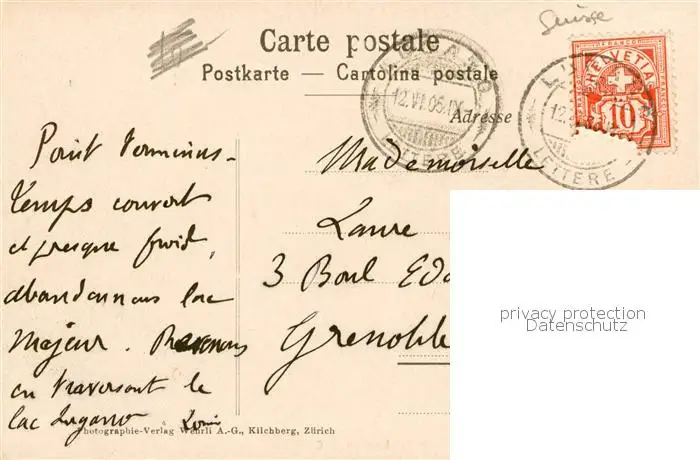 Suisse
Carte postale
Postkarte — Cartolina postale
Adresse
FRANCO
HELVETIA
10
LUGANO
12.VI.05.IX
LETTERE
LETTERE
Point terminus –
temps couvert
et presque froid,
abandonnons lac
majeur. Revenons
en traversant le
lac Lugano Louis
Mademoiselle
Laure
3 Boul Edo
Grenoble
Photographie-Verlag Wehrli A.-G., Kilchberg, Zürich
privacy protection
Datenschutz